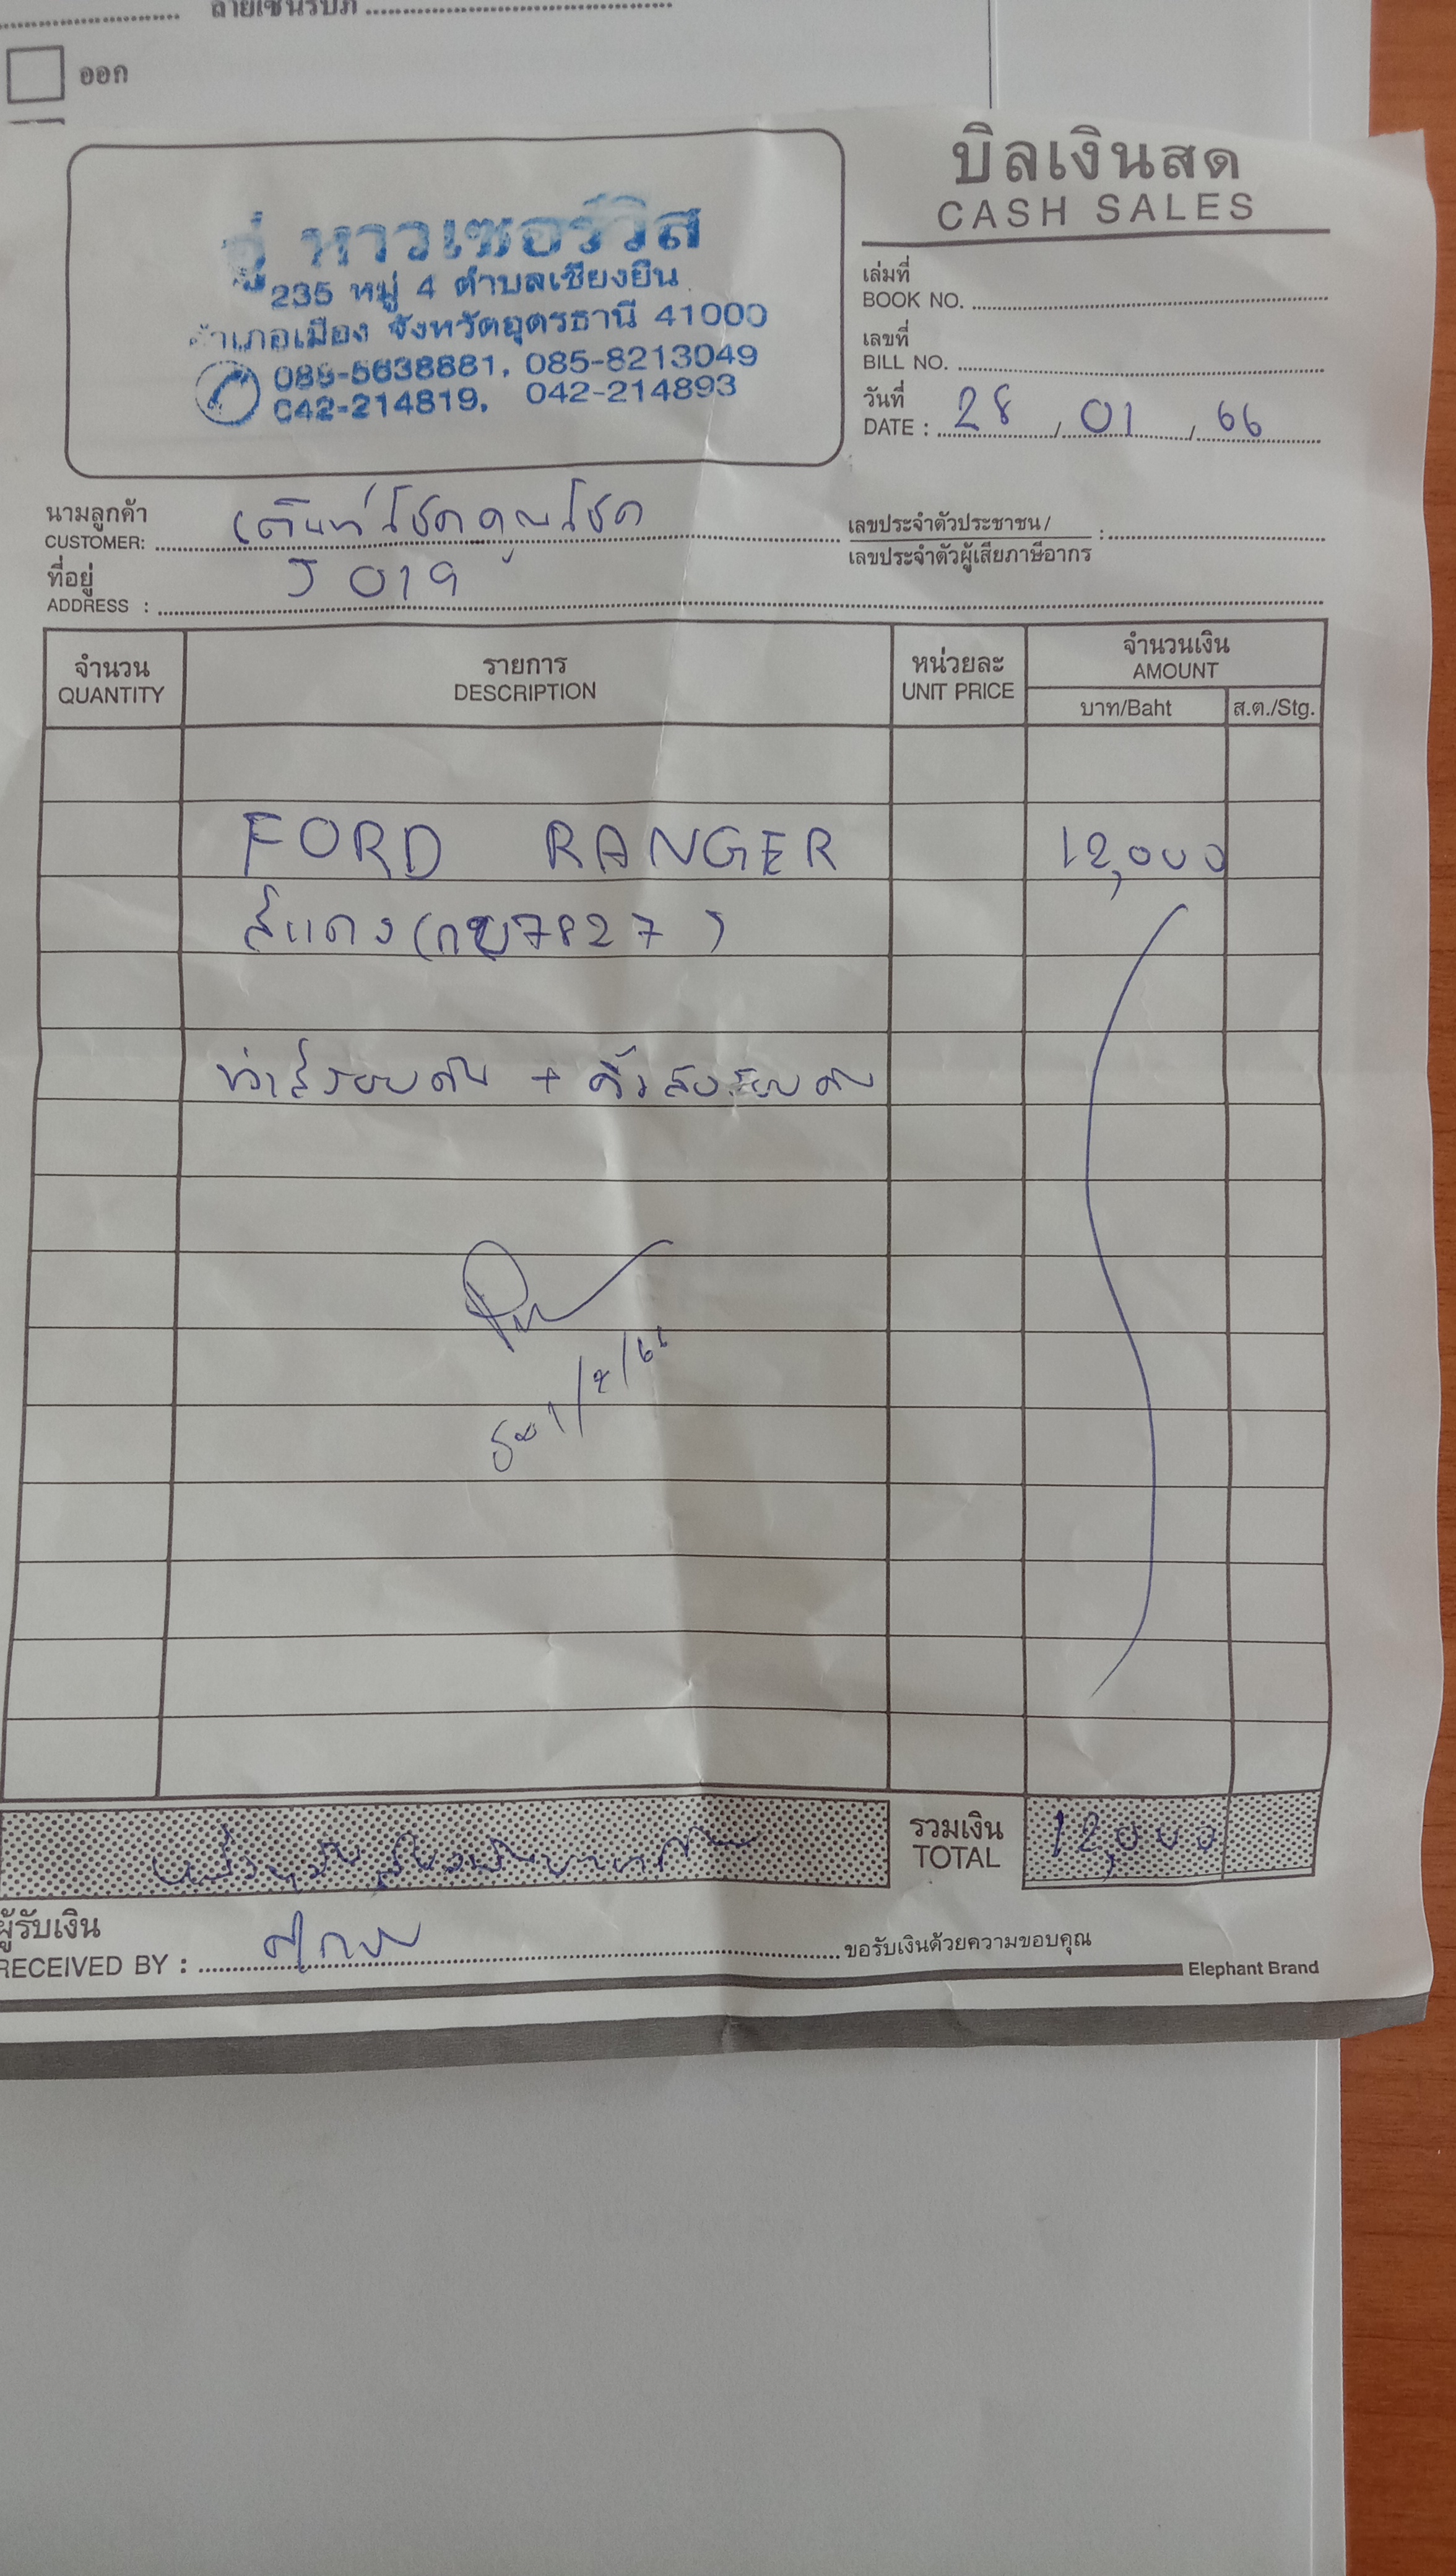 ลายเซ็นรปภ
ออก
บิลเงินสด
CASH SALES
อู่ หาวเซอร์วิส
235 หมู่ 4 ตำบลเชียงยืน
อำเภอเมือง จังหวัดอุดรธานี 41000
085-5638881, 085-8213049
042-214819, 042-214893
เล่มที่
BOOK NO.
เลขที่
BILL NO.
วันที่
DATE : 28 / 01 / 66
นามลูกค้า
CUSTOMER: เต็นท์โชคคูณโชค
เลขประจำตัวประชาชน/ :
เลขประจำตัวผู้เสียภาษีอากร
ที่อยู่ J 019
ADDRESS :
จำนวน รายการ หน่วยละ จำนวนเงิน
QUANTITY DESCRIPTION UNIT PRICE AMOUNT
บาท/Baht ส.ต./Stg.
FORD RANGER 12,000
สีแดง (กข7827)
พ่นสีรอบคัน + คิ้วล้อรอบคัน
1/2/66
หนึ่งหมื่นสองพันบาทถ้วน
รวมเงิน 12,000
TOTAL
ผู้รับเงิน
RECEIVED BY : ขอรับเงินด้วยความขอบคุณ
Elephant Brand